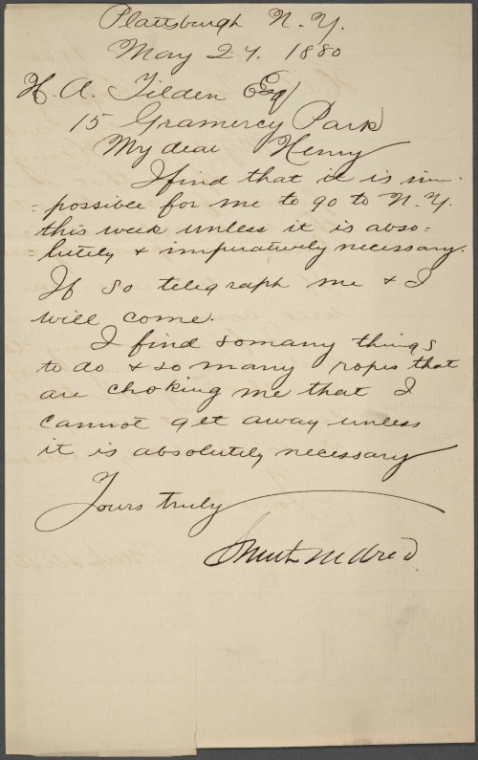 Plattsburgh N.Y.
May 24. 1880
H. A. Tilden Esq
15 Gramercy Park
My dear Henry
I find that it is im-
=possible for me to go to N.Y.
this week unless it is abso-
=lutely & imperatively necessary.
If so telegraph me & I
will come.
I find somany things
to do & so many ropes that
are choking me that I
cannot get away unless
it is absolutely necessary
Yours truly
Smith M Weed